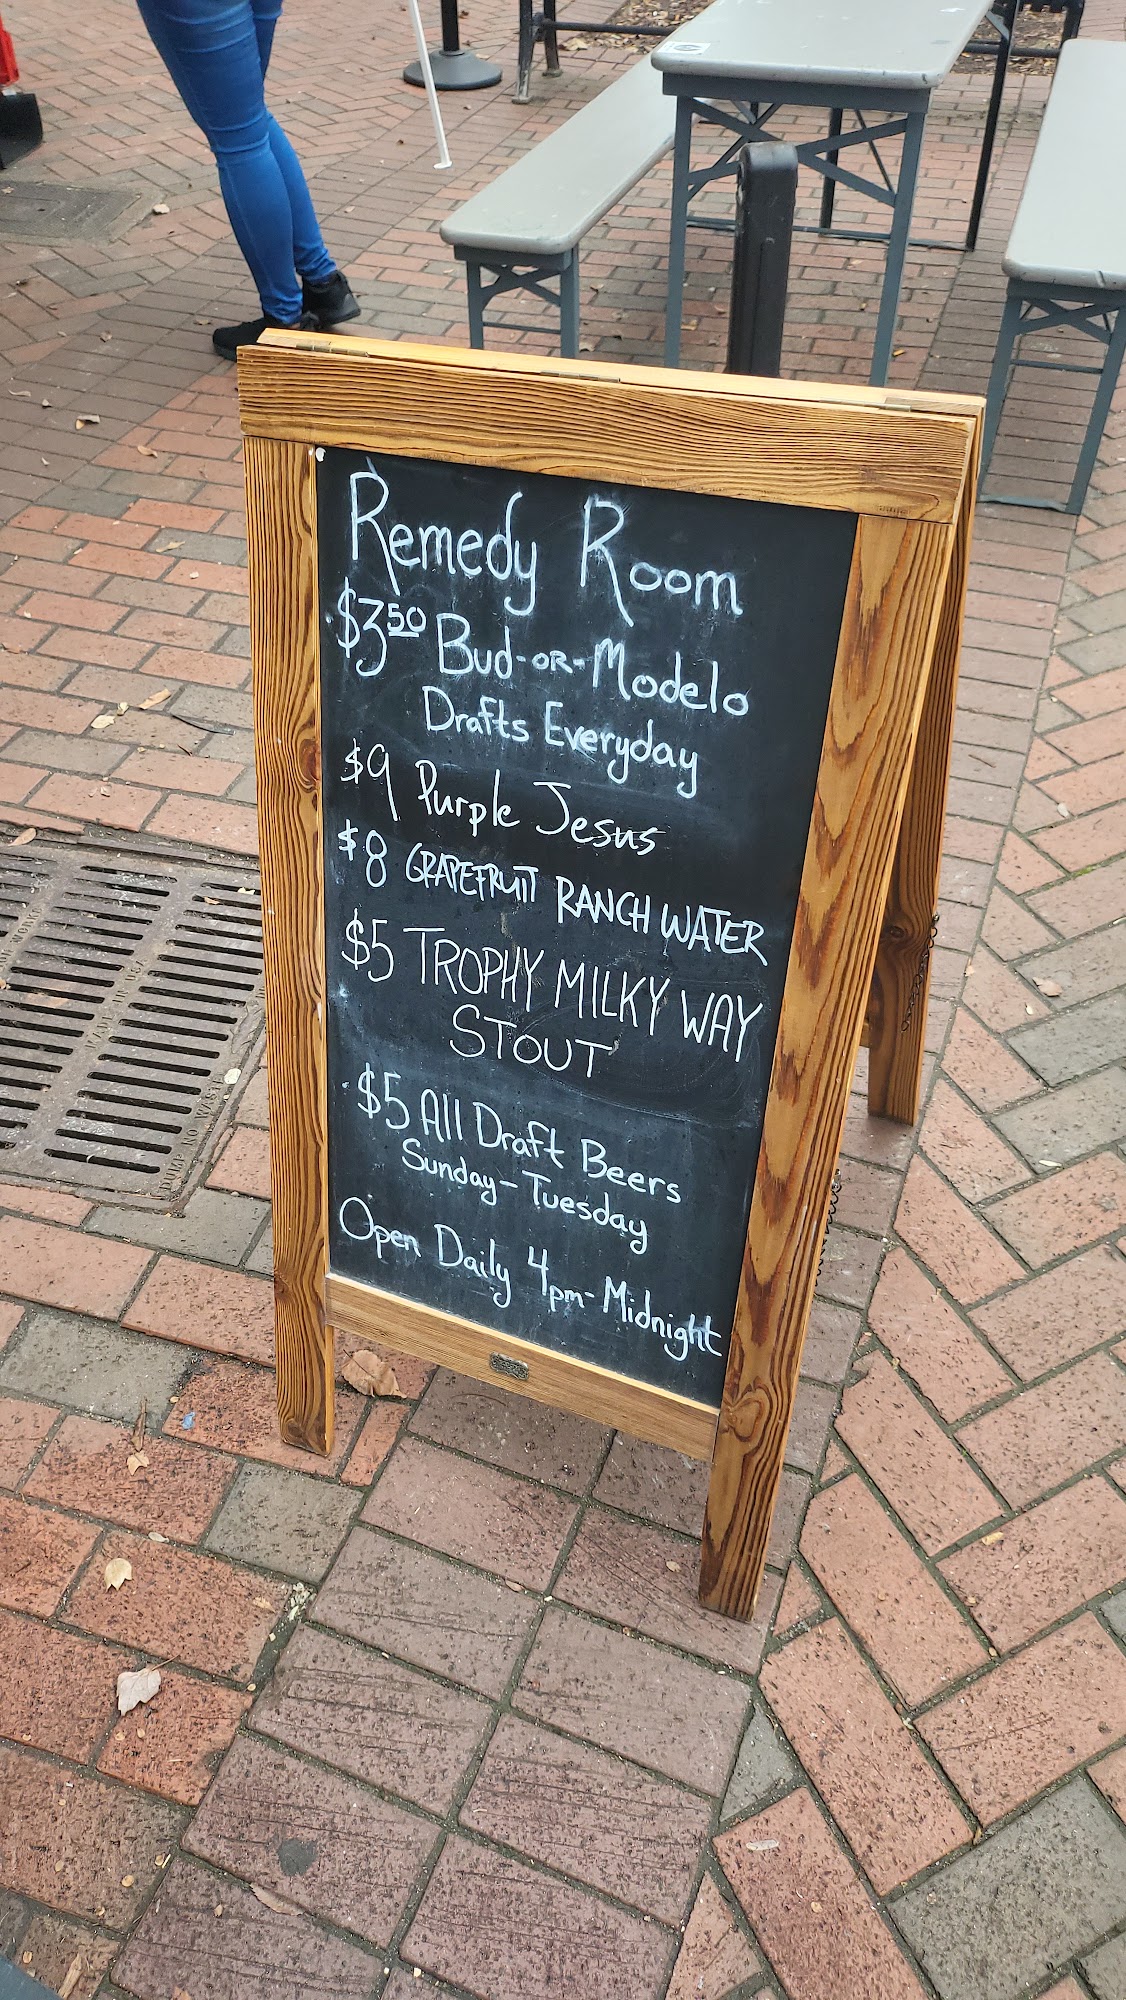 Remedy Room
$350 Bud-OR-Modelo
Drafts Everyday
$9 Purple Jesus
$8 GRAPEFRUIT RANCH WATER
$5 TROPHY MILKY WAY
STOUT
$5 All Draft Beers
Sunday-Tuesday
Open Daily 4pm-Midnight